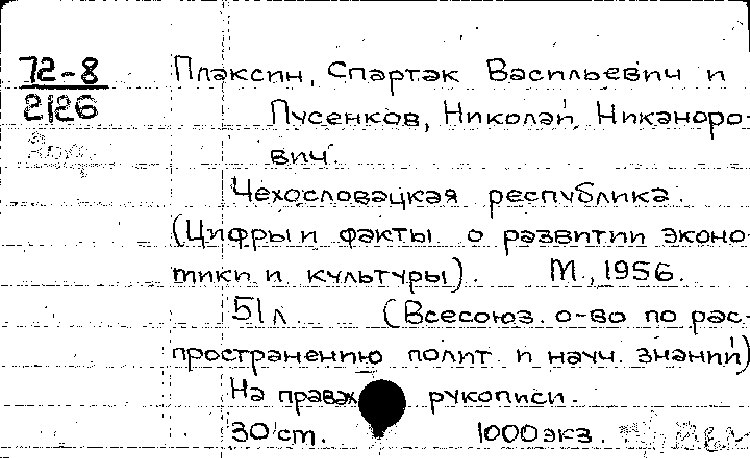 72-8
2126
Плаксин, Спартак Васильевич и
Лусенков, Николай Никаноро-
вич.
Чехословацкая республика.
(Цифры и факты о развитии эконо-
мики и культуры). М., 1956.
51 л. (Всесоюз. о-во по рас-
пространению полит. и науч. знаний)
На правах рукописи.
30 ст. 1000 экз.